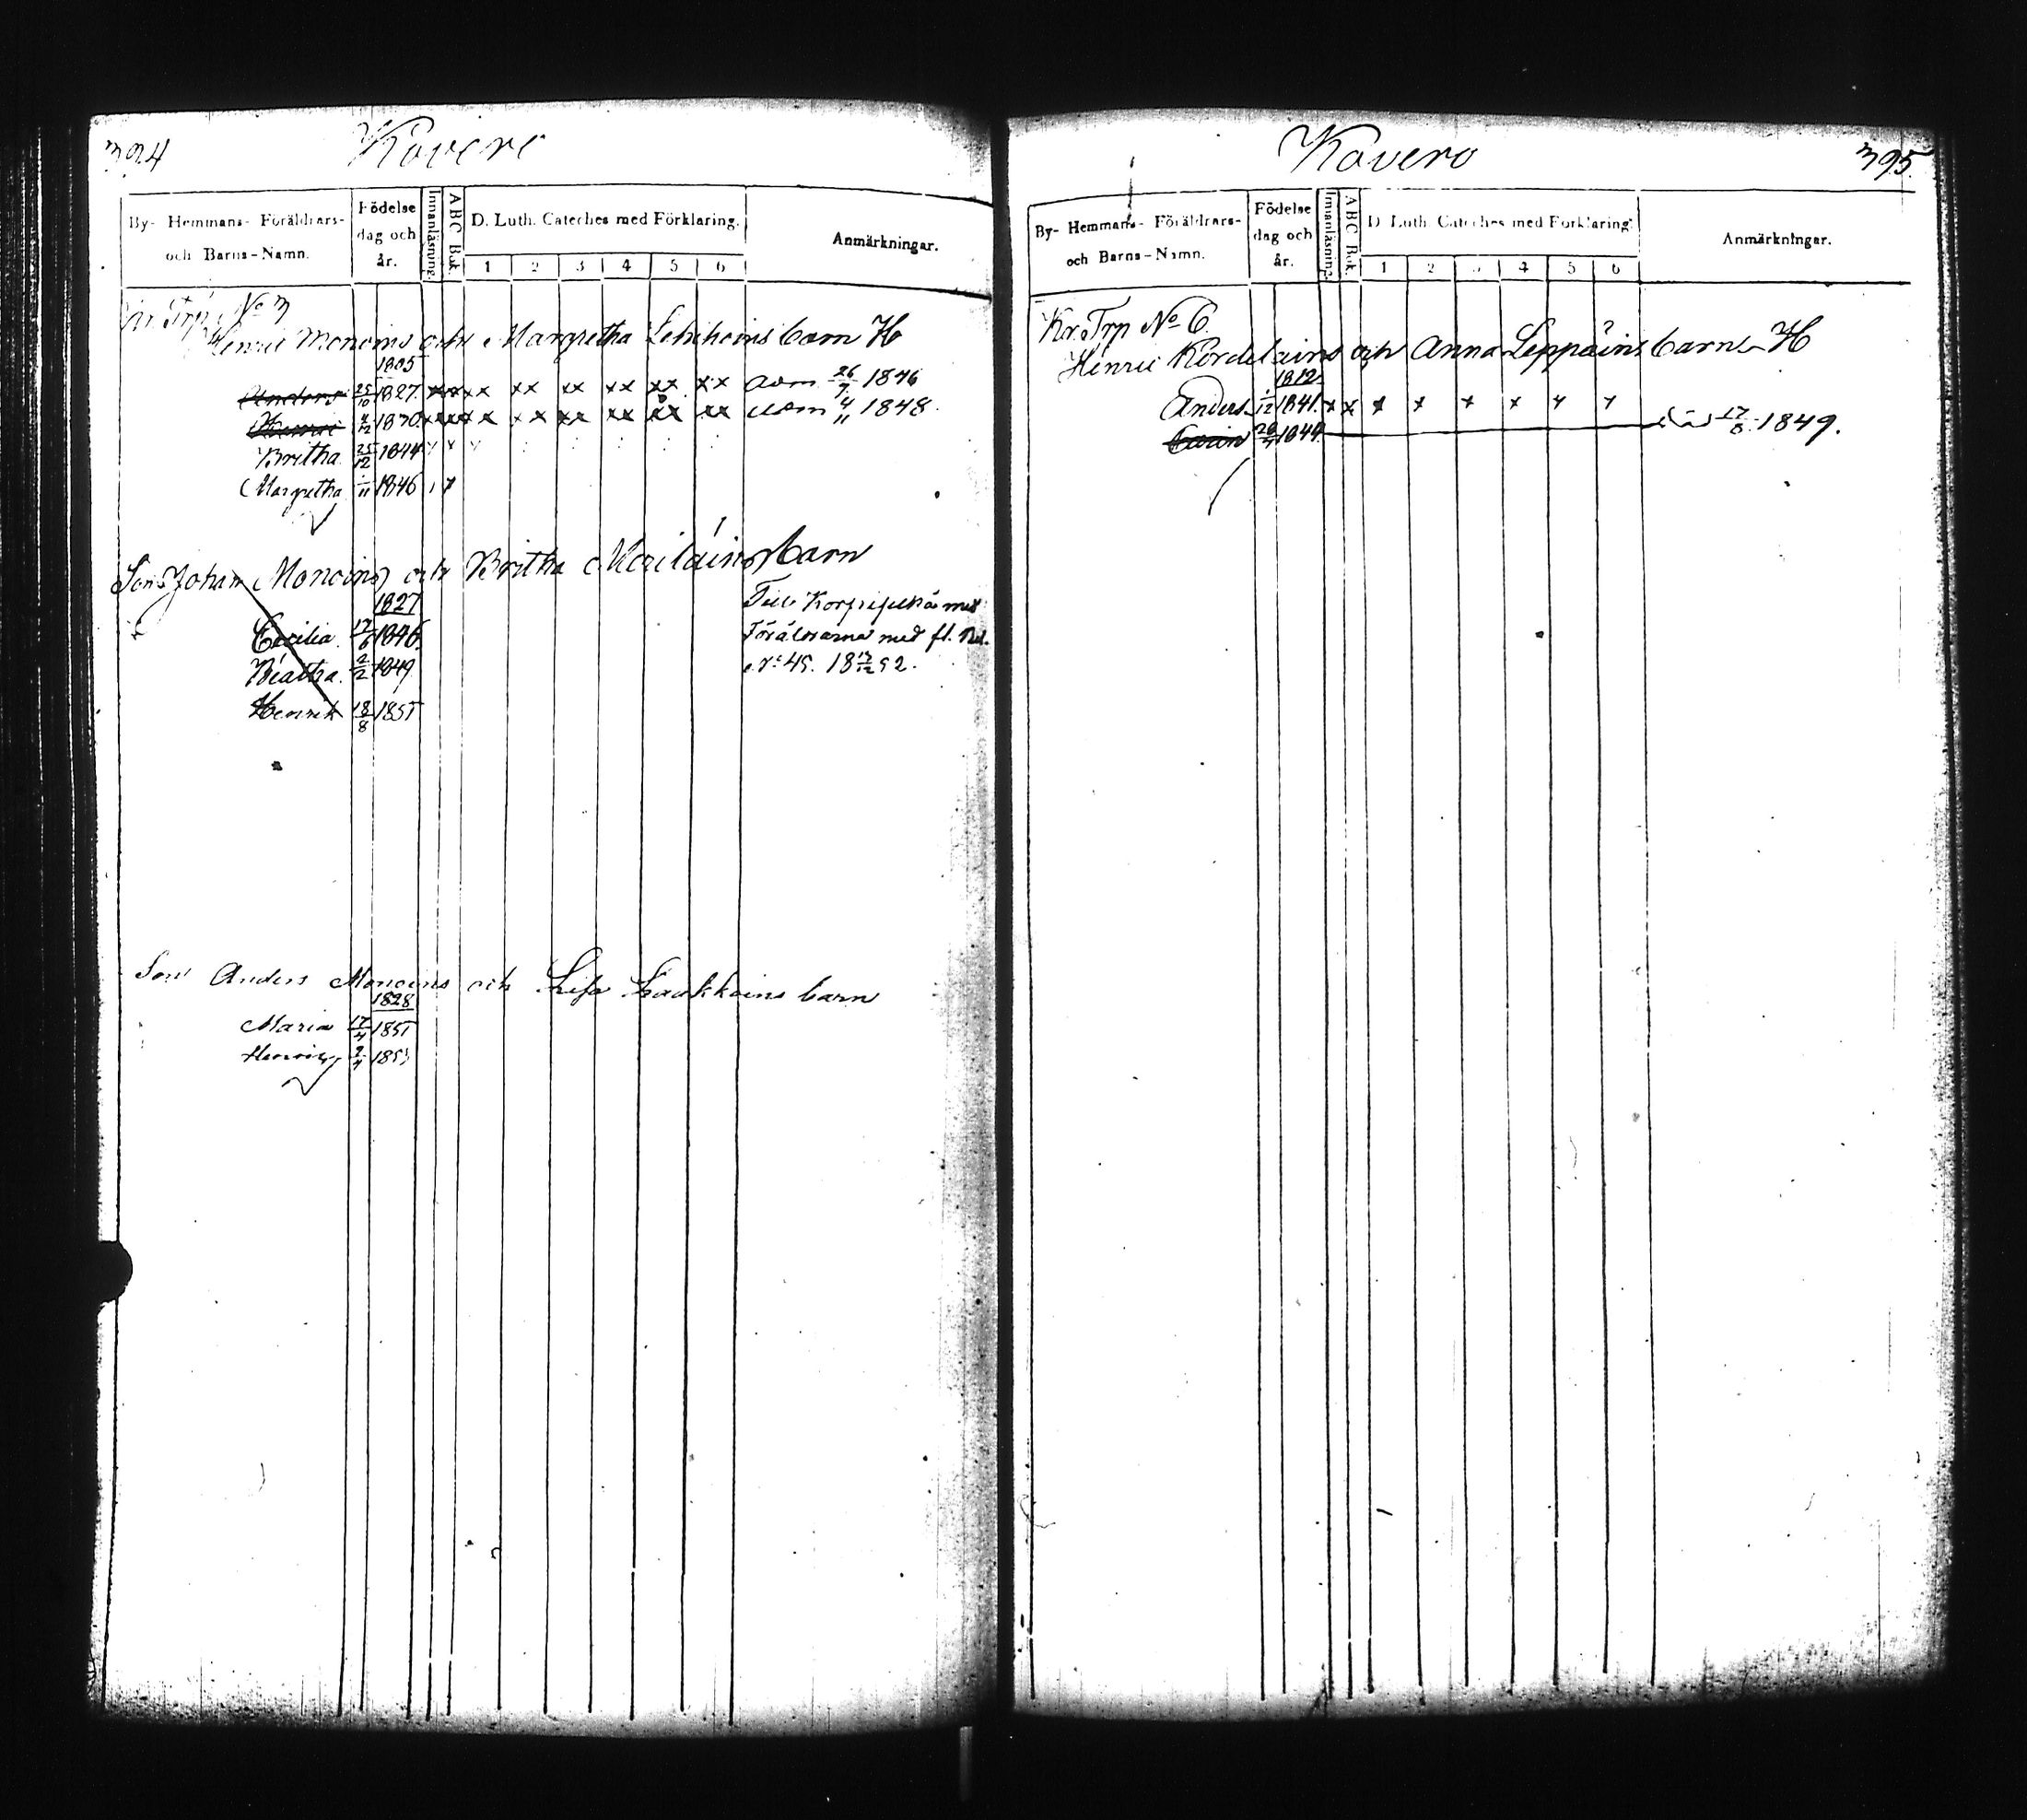 394 Kovero
By- Hemmans- Föräldrars- och Barns-Namn.
Födelse dag och år.
Innanläsning.
ABC Bok.
D. Luth. Cateches med Förklaring.
1 2 3 4 5 6
Anmärkningar.
Kr. Trp. No 3
Henric Monoins och Margretha barn H
1805
Anders 25/10 1827 xx xx xx xx xx xx xx adm 26/7 1846
Henric 1830 xx xx xx xx xx xx adm 4/11 1848.
Britha 25/12 1844
Margretha 1/11 1846
Son Johan Monoins och Britha barn
1827
Till med
Cecilia 17/6 1846. Föräldrarna med fl. Bet.
Beatha. 2/2 1849 No 45. 18 52.
Henrik 18/8 1851
Son Anders Monoins och Lisa barn
1828
Maria 17/4 1851
1853
Kovero 395.
By- Hemmans- Föräldrars- och Barns-Namn.
Födelse dag och år.
Innanläsning.
ABC Bok.
D. Luth. Cateches med Förklaring.
1 2 3 4 5 6
Anmärkningar.
Kr. Trp No 6.
Henric Kordelains och Anna Leppäins barn H
1812
Anders 1/12 1841. x x x x x x x x
Carin 1849 död 17/8 1849.